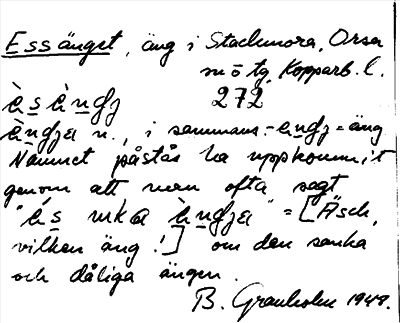 Essänget, äng i Stackmora, Orsa
s:n o tg, Kopparb. l.
èsèndj 272
èndja n., i sammans. -endj = äng
Namnet påstås ha uppkommit
genom att man ofta sagt
"és uka èndja" = [Äsch,
vilken äng!] om den sanka
och dåliga ängen.
B. Granholm 1949.